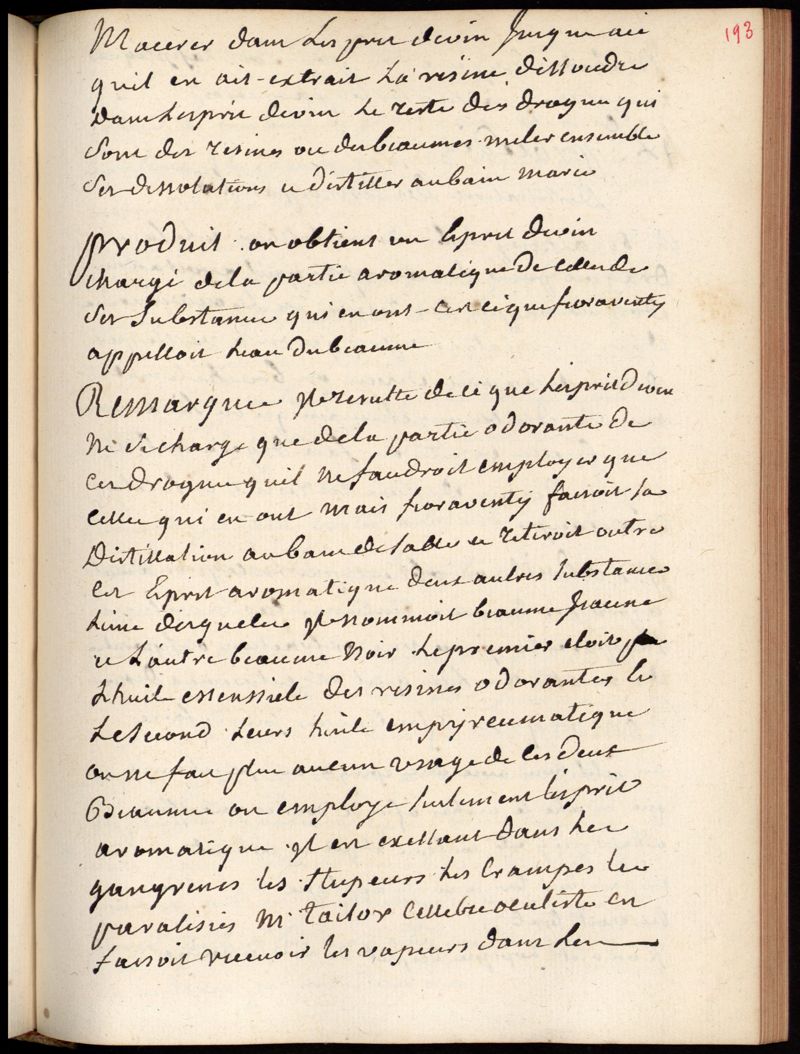 193
Macerer dans Lesprit devin Jusque ace
quil en ait extrait La résine dissoudre
Dans Lesprit devin Le reste des drogue qui
sont des resines ou des beaumes meler ensemble
ses dissolutions et distiller aubain marie
produit on obtient un Esprit devin
chargé dela partie aromatique De celle de
ses Substance qui en ont cest ce que fioraventy
appelloit leau du beaume
Remarque Il resulte de ce que Lesprit devin
ne se charge que dela partie odorante de
ces drogue quil ne faudroit employer que
celle qui en ont mais fioraventy faisoit sa
Distillation au bain de sable et retiroit outre
cet Esprit aromatique deux autres substance
Lune desquelle Il nommoit beaume Jaune
et Lautre beaume Noir Le premier etoit
Lhuile essensiele des resines odorantes le
Le second Leurs huile empyreumatique
on ne fait plus aucun usage de ces deux
Beaume on employe seulement lesprit
aromatique il est exellant dans les
gangrenes les stupeurs Les Crampes les
paralisies Mr Tailor cellebre oculiste en
faisoit recevoir les vapeurs dans les